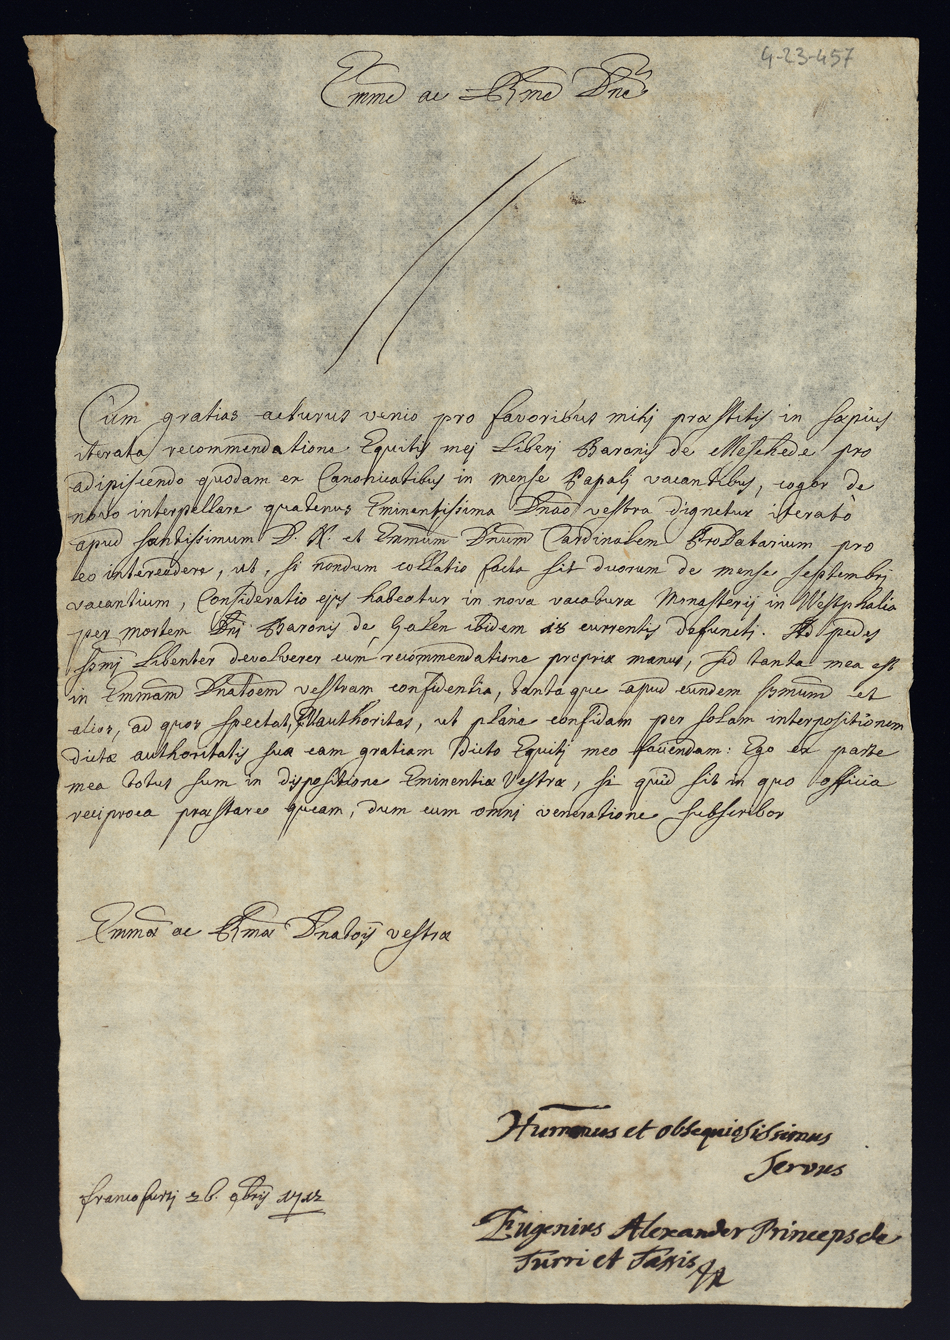 4-23-457
Emme ac Rme Dne
Cum gratias acturus venio pro favoribus mihj præstitis in sæpius
iterata recommendatione Equitis mej Liberj Baronis de Meschede pro
adipiscendo quodam ex Canonicatibus in mense Papalj vacantibus, cogor de
novo interpellare quatenus Eminentissima Dnao vestra dignetur iteratò
apud sanctissimum D. N. et Emmum Dnum Cardinalem ProDatarium pro
eo intercedere, ut, si nondum collatio facta sit duorum de mense septembrj
vacantium, Consideratio ejus habeatur in nova vacatura Monasterij in Westphalia
per mortem Dnj Baronis de Galen ibidem 18 currentis defuncti. Ad pedes
ssmj Libenter devolverer cum recommendatione propriæ manus, sed tanta mea est
in Emmam Dnatoem vestram confidentia, tantaque apud eundem ssmum et
alios, ad quos spectat, authoritas, ut plane confidam per solam interpositionem
dictæ authoritatis suæ eam gratiam dicto Equitj meo faciendam: Ego ex parte
mea totus sum in dispositione Eminentiæ Vestræ, si quid sit in quo officia
reciproca præstare queam, dum cum omnj veneratione subscribor
Emmæ ac Rmæ Dnatoij vestræ
Hummus et obsequiosissimus
servus
francofurtj 26. 9bris 1712
Eugenius Alexander Princeps de
Turri et Taxis